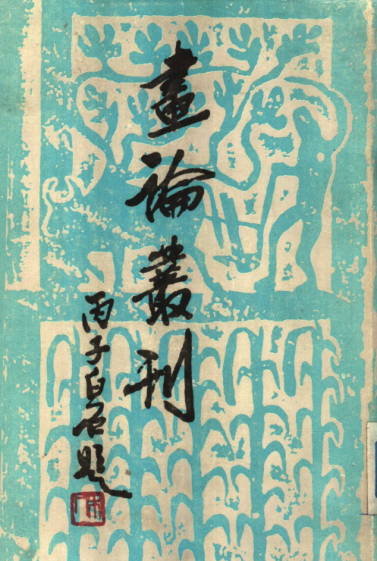 畫論叢刊
丙子白石題